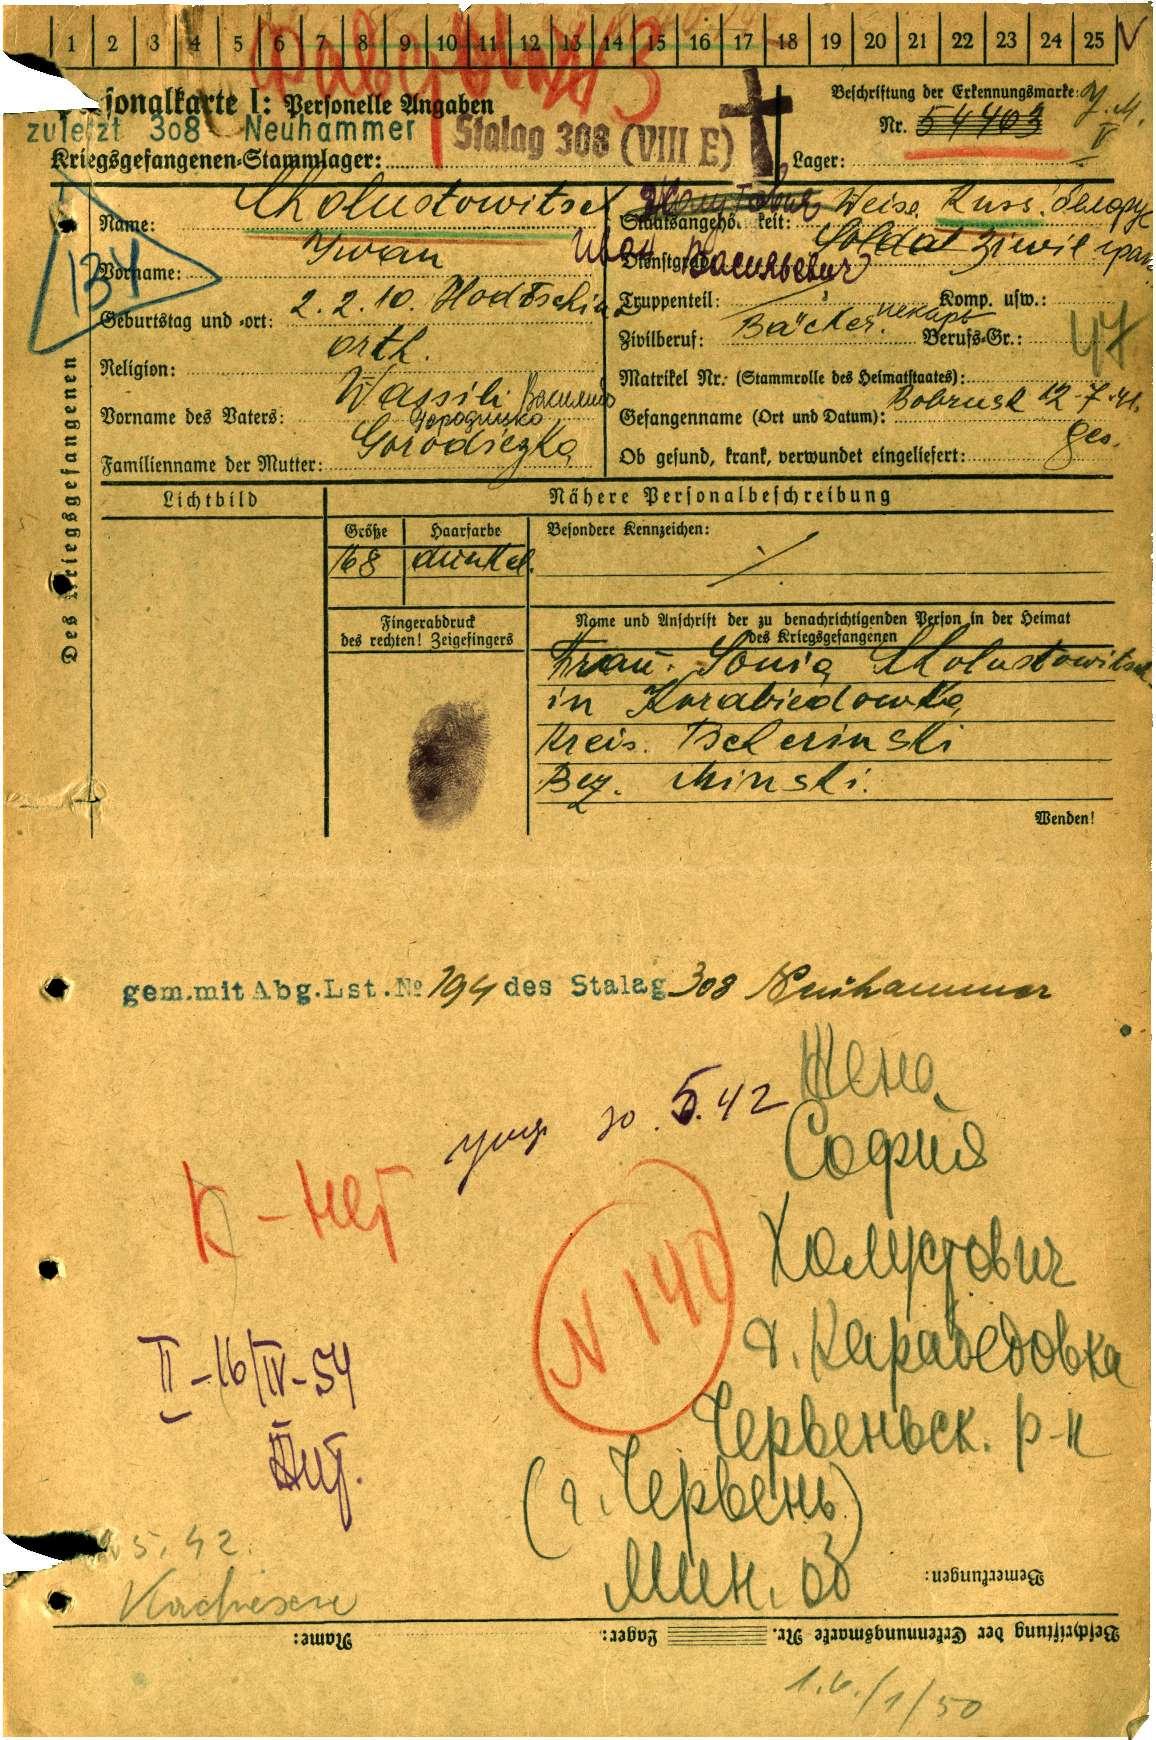 1 2 3 4 5 6 7 8 9 10 11 12 13 14 15 16 17 18 19 20 21 22 23 24 25 V
sonalkarte I: Personelle Angaben
Beschriftung der Erkennungsmarke:
zuletzt 308 Neuhammer
Stalag 308 (VIII E)
Nr. 54403
Kriegsgefangenen-Stammlager:
Lager:
Des Kriegsgefangenen
134
Name: Cholustowitsch
Staatsangehörigkeit: Weiss Russ. белорус
Vorname: Iwan
Иван Васильевич
Dienstgrad: Soldat Ziwil
Geburtstag und -ort: 2.2.10.
Truppenteil:
Komp. usw.:
Zivilberuf: Bäcker. пекарь
Berufs-Gr.:
47
Religion: orth.
Matrikel Nr. (Stammrolle des Heimatstaates):
Vorname des Vaters: Wassili
Gefangenname (Ort und Datum): Bobrusk 12.7.41.
Familienname der Mutter:
Ob gesund, krank, verwundet eingeliefert: ges.
Lichtbild
Nähere Personalbeschreibung
Größe
Haarfarbe
Besondere Kennzeichen:
168
dunkel.
Fingerabdruck
des rechten! Zeigefingers
Name und Anschrift der zu benachrichtigenden Person in der Heimat
des Kriegsgefangenen
Frau. Sonia Cholustowitsch
in Karabiedowka
Kreis. Tscherinski
Bez. Minski.
Wenden!
gem.mit Abg.Lst.№ 194 des Stalag 308 Neuhammer
Жена
30.5.42
София
К - нет
N 140
Холустович
д. Карабедовка
II-16/IV-54
Червеньск. р-н
(г. Червень)
5.42.
Мин. об
Bemerkungen:
Beschriftung der Erkennungsmarke Nr.
Lager:
Name: